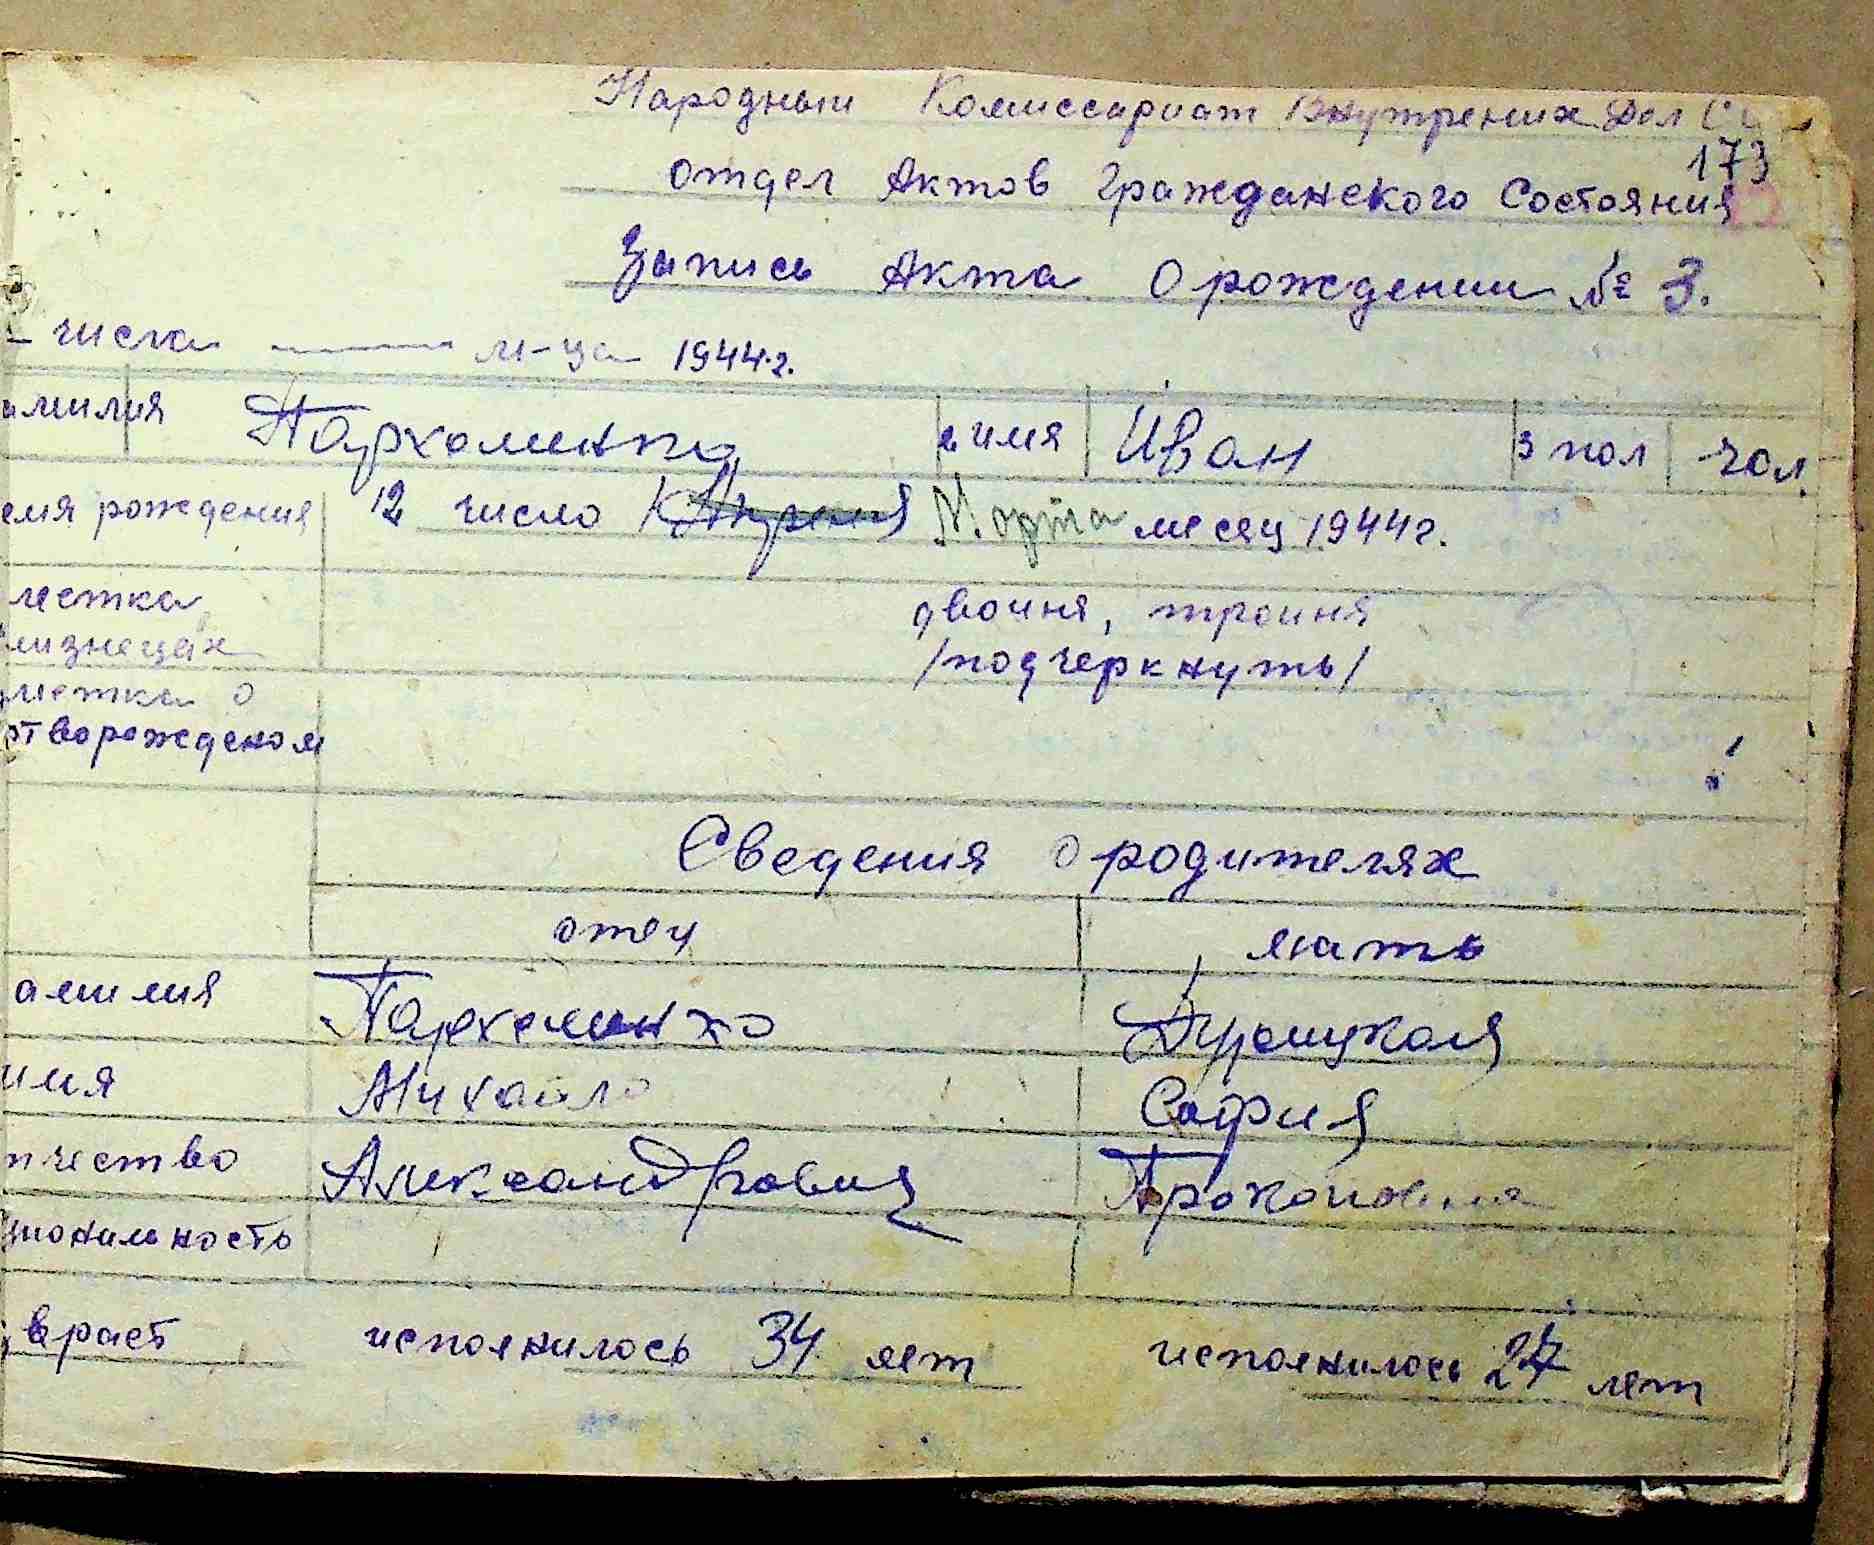 Народный Комиссариат Внутрених Дел
173
отдел Актов Гражданского Состояния
Запись Акта О рождении № 3.
числа м-ца 1944 г.
амилия Пархоминко 2 имя Иван 3 пол чол.
емя рождения 12 число Марта месяц 1944 г.
метка двойня, тройня
лизнецах /подчеркнуть/
метка о
ртворожденом
Сведения о родителях
отец мать
амилия Пархоминко
имя Михайло София
тчество Александрович Прокоповна
циональность
враст исполнилось 34 лет исполнилось 27 лет